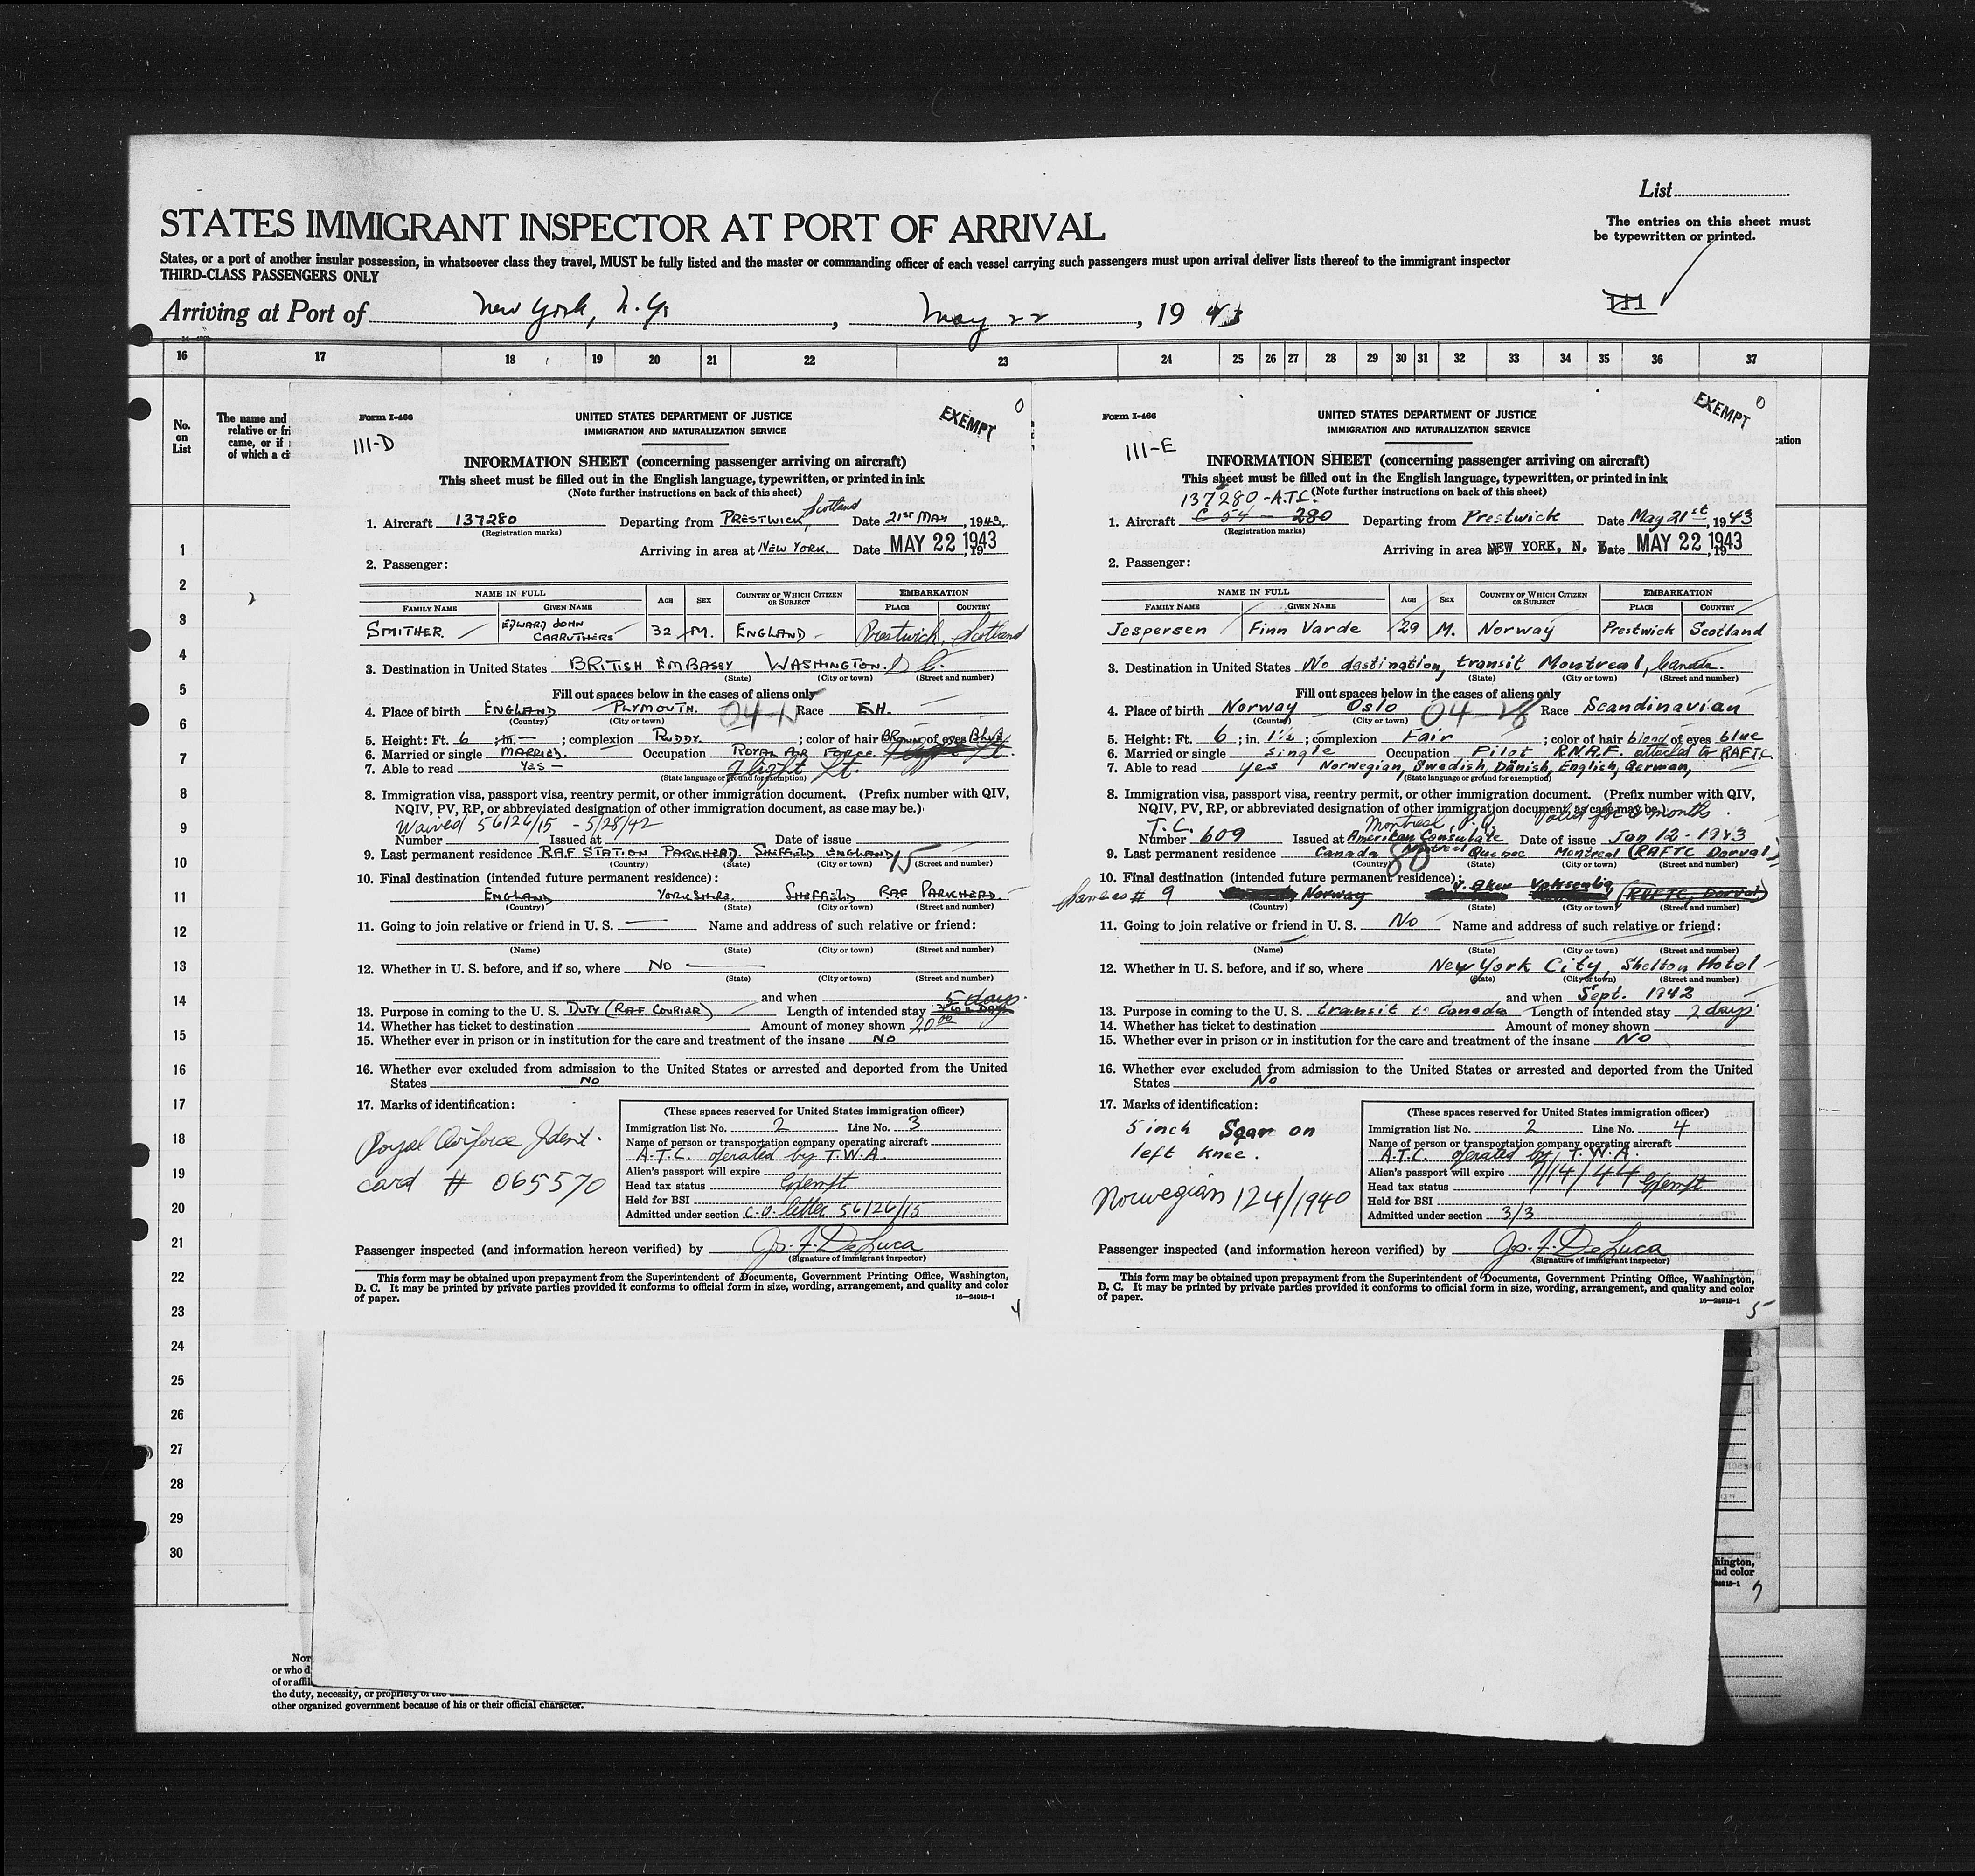 List
The entries on this sheet must
be typewritten or printed.
STATES IMMIGRANT INSPECTOR AT PORT OF ARRIVAL
States, or a port of another insular possession, in whatsoever class they travel, MUST be fully listed and the master or commanding officer of each vessel carrying such passengers must upon arrival deliver lists thereof to the immigrant inspector
THIRD-CLASS PASSENGERS ONLY
Arriving at Port of New York, N.Y. , May 22 , 19 43
111
16 17 18 19 20 21 22 23 24 25 26 27 28 29 30 31 32 33 34 35 36 37
No.
on
List
The name and
relative or fri
came, or if
of which a ci
1
2
3
4
5
6
7
8
9
10
11
12
13
14
15
16
17
18
19
20
21
22
23
24
25
26
27
28
29
30
Form I-466
III-D
UNITED STATES DEPARTMENT OF JUSTICE
IMMIGRATION AND NATURALIZATION SERVICE
EXEMPT
0
INFORMATION SHEET (concerning passenger arriving on aircraft)
This sheet must be filled out in the English language, typewritten, or printed in ink
(Note further instructions on back of this sheet)
1. Aircraft 137280 Departing from PRESTWICK, Scotland Date 21ST MAY, 1943.
(Registration marks)
Arriving in area at NEW YORK. Date MAY 22 1943, 19
2. Passenger:
NAME IN FULL AGE SEX COUNTRY OF WHICH CITIZEN OR SUBJECT EMBARKATION
FAMILY NAME GIVEN NAME PLACE COUNTRY
SMITHER. EDWARD JOHN CARRUTHERS 32 M. ENGLAND Prestwick, Scotland
3. Destination in United States BRITISH EMBASSY WASHINGTON. D.C.
(State) (City or town) (Street and number)
Fill out spaces below in the cases of aliens only
4. Place of birth ENGLAND PLYMOUTH. Race EH.
(Country) (City or town)
5. Height: Ft. 6 ; in. — ; complexion RUDDY. ; color of hair BROWN of eyes BLUE
6. Married or single MARRIED. Occupation ROYAL AIR FORCE.
7. Able to read YES — Flight Lt.
(State language or ground for exemption)
8. Immigration visa, passport visa, reentry permit, or other immigration document. (Prefix number with QIV,
NQIV, PV, RP, or abbreviated designation of other immigration document, as case may be.)
Waived 56126/15 - 5/28/42
Number Issued at Date of issue
9. Last permanent residence RAF STATION PARKHEAD. SHEFFIELD ENGLAND
(Country) (State) (City or town) (Street and number)
10. Final destination (intended future permanent residence):
ENGLAND YORKSHIRE. SHEFFIELD RAF PARKHEAD.
(Country) (State) (City or town) (Street and number)
11. Going to join relative or friend in U. S. — Name and address of such relative or friend:
(Name) (State) (City or town) (Street and number)
12. Whether in U. S. before, and if so, where NO
(State) (City or town) (Street and number)
and when
5 days.
13. Purpose in coming to the U. S. DUTY (RAF COURIER) Length of intended stay
14. Whether has ticket to destination Amount of money shown 20.00
15. Whether ever in prison or in institution for the care and treatment of the insane NO
16. Whether ever excluded from admission to the United States or arrested and deported from the United
States NO
17. Marks of identification:
Royal Airforce Ident.
card # 065570
(These spaces reserved for United States immigration officer)
Immigration list No. 2 Line No. 3
Name of person or transportation company operating aircraft
A.T.C. operated by T.W.A.
Alien's passport will expire
Head tax status Exempt
Held for BSI
Admitted under section C.O. letter 56126/15
Passenger inspected (and information hereon verified) by Jos. F. DeLuca
(Signature of immigrant inspector)
This form may be obtained upon prepayment from the Superintendent of Documents, Government Printing Office, Washington,
D. C. It may be printed by private parties provided it conforms to official form in size, wording, arrangement, and quality and color
of paper. 16—24915-1
4
Form I-466
III-E
UNITED STATES DEPARTMENT OF JUSTICE
IMMIGRATION AND NATURALIZATION SERVICE
EXEMPT
0
INFORMATION SHEET (concerning passenger arriving on aircraft)
This sheet must be filled out in the English language, typewritten, or printed in ink
(Note further instructions on back of this sheet)
137280 - A.T.C.
1. Aircraft C-54 - 280 Departing from Prestwick Date May 21st, 1943
(Registration marks)
Arriving in area NEW YORK, N. Y. Date MAY 22 1943, 19
2. Passenger:
NAME IN FULL AGE SEX COUNTRY OF WHICH CITIZEN OR SUBJECT EMBARKATION
FAMILY NAME GIVEN NAME PLACE COUNTRY
Jespersen Finn Varde 29 M. Norway Prestwick Scotland
3. Destination in United States No dastination, transit Montreal, Canada.
(State) (City or town) (Street and number)
Fill out spaces below in the cases of aliens only
4. Place of birth Norway Oslo Race Scandinavian
(Country) (City or town)
5. Height: Ft. 6 ; in. 1½ ; complexion Fair ; color of hair blond of eyes blue
6. Married or single single Occupation Pilot R.N.A.F. attached to RAFTC.
7. Able to read yes Norwegian, Swedish, Danish, English, German,
(State language or ground for exemption)
8. Immigration visa, passport visa, reentry permit, or other immigration document. (Prefix number with QIV,
NQIV, PV, RP, or abbreviated designation of other immigration document, as case may be.)
Valid for 6 months
T.C. Montreal, P.Q.
Number 609 Issued at American Consulate Date of issue Jan 12 - 1943
9. Last permanent residence Canada Quebec Montreal (RAFTC Dorval)
(Country) (State) (City or town) (Street and number)
10. Final destination (intended future permanent residence):
Same as # 9 Norway V. Aker (RAFTC, Dorval)
(Country) (State) (City or town) (Street and number)
11. Going to join relative or friend in U. S. No Name and address of such relative or friend:
(Name) (State) (City or town) (Street and number)
12. Whether in U. S. before, and if so, where New York City, Shelton Hotel
(State) (City or town) (Street and number)
and when Sept. 1942
13. Purpose in coming to the U. S. transit to Canada Length of intended stay 2 days
14. Whether has ticket to destination Amount of money shown
15. Whether ever in prison or in institution for the care and treatment of the insane No
16. Whether ever excluded from admission to the United States or arrested and deported from the United
States No
17. Marks of identification:
5 inch Scar on
left knee.
Norwegian 124/1940
(These spaces reserved for United States immigration officer)
Immigration list No. 2 Line No. 4
Name of person or transportation company operating aircraft
A.T.C. operated by T.W.A.
Alien's passport will expire 7/14/44
Head tax status Exempt
Held for BSI
Admitted under section 3/3
Passenger inspected (and information hereon verified) by Jos. F. DeLuca
(Signature of immigrant inspector)
This form may be obtained upon prepayment from the Superintendent of Documents, Government Printing Office, Washington,
D. C. It may be printed by private parties provided it conforms to official form in size, wording, arrangement, and quality and color
of paper. 16—24915-1
5
hington,
nd color
24915-1
7
Nor
or who d
of or affil
the duty, necessity, or propriety of the
other organized government because of his or their official character.